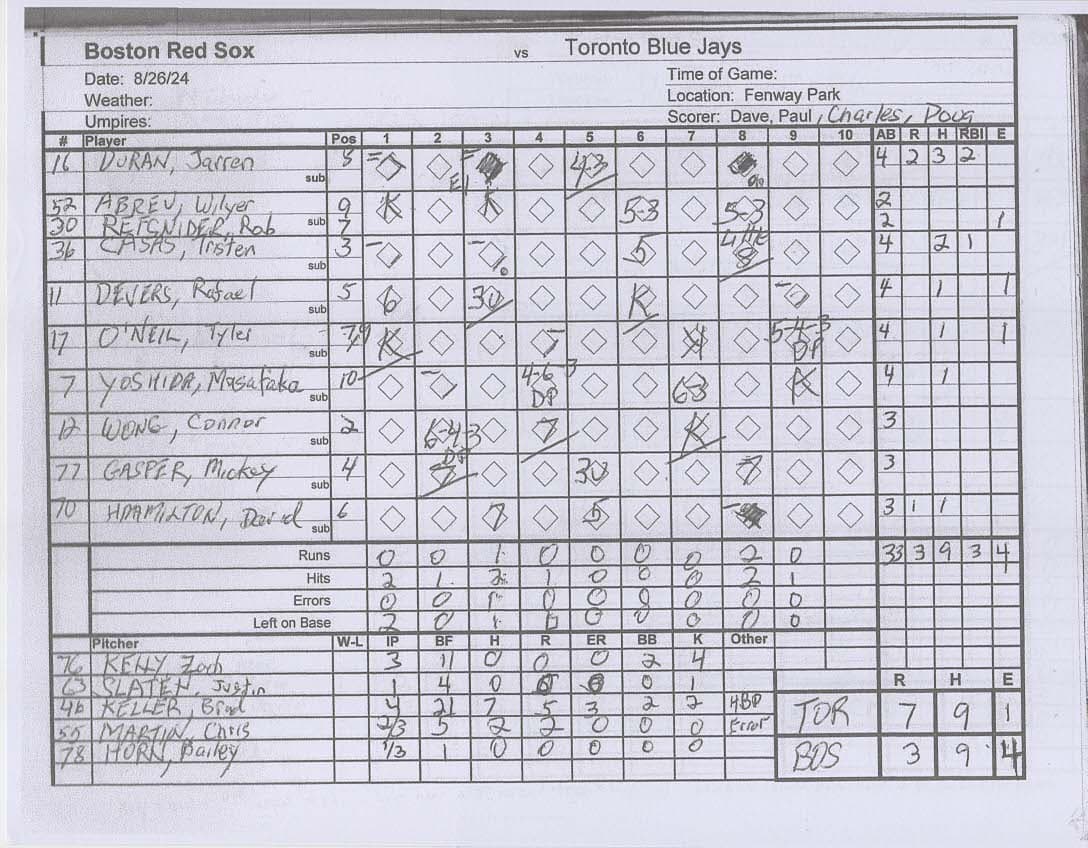 Boston Red Sox vs Toronto Blue Jays
Date: 8/26/24 Time of Game:
Weather: Location: Fenway Park
Umpires: Scorer: Dave, Paul, Charles, Doug
# Player Pos 1 2 3 4 5 6 7 8 9 10 AB R H RBI E
16 DURAN, Jarren 8 E1 4-3 4 2 3 2
sub
52 ABREU, Wilyer 9 K K 5-3 5-3 2
30 REFSNIDER, Rob sub 7 2 1
36 CASAS, Tristen 3 5 8 4 2 1
sub
11 DEVERS, Rafael 5 6 3U K 4 1 1
sub
17 O'NEIL, Tyler K 7 5-4-3 DP 4 1 1
sub
7 YOSHIDA, Masataka 10 4-6-3 DP 6-3 K 4 1
sub
12 WONG, Connor 2 6-4-3 DP 7 K 3
sub
77 GASPER, Mickey 4 7 3U 7 3
sub
70 HAAMILTON, David 6 7 5 3 1 1
sub
Runs 0 0 1 0 0 0 0 2 0 33 3 9 3 4
Hits 2 1 2 1 0 0 0 2 1
Errors 0 0 1 0 0 0 0 0 0
Left on Base 2 0 1 0 0 0 0 0 0
Pitcher W-L IP BF H R ER BB K Other
76 KELLY, Zach 3 11 0 0 0 2 4
63 SLATEN, Justin 1 4 0 0 0 0 1
46 KELLER, Brad 4 21 7 5 3 2 2 HBP
55 MARTIN, Chris 2/3 5 2 2 0 0 0 Error
78 HORN, Bailey 1/3 1 0 0 0 0 0
R H E
TOR 7 9 1
BOS 3 9 4